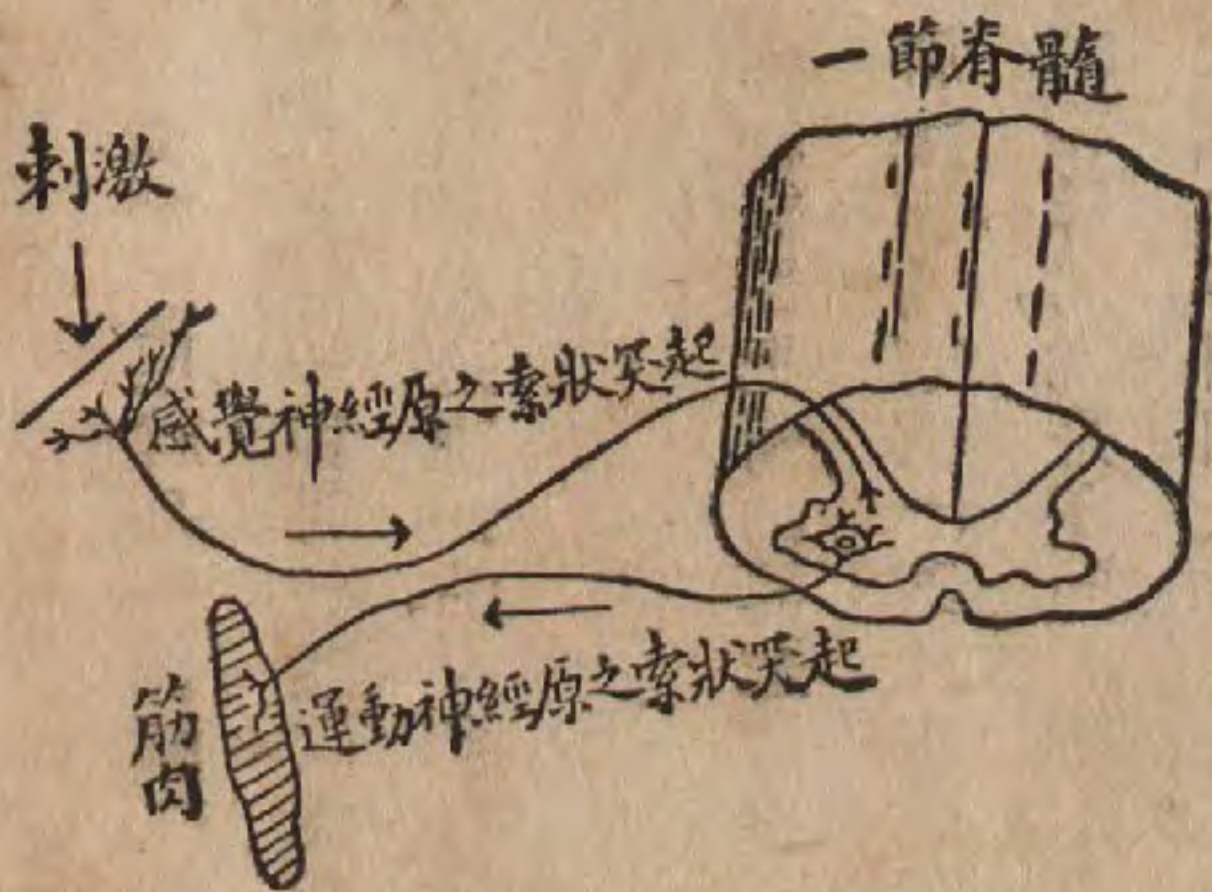 一節脊髓
刺激
感覺神經原之索狀突起
運動神經原之索狀突起
筋肉